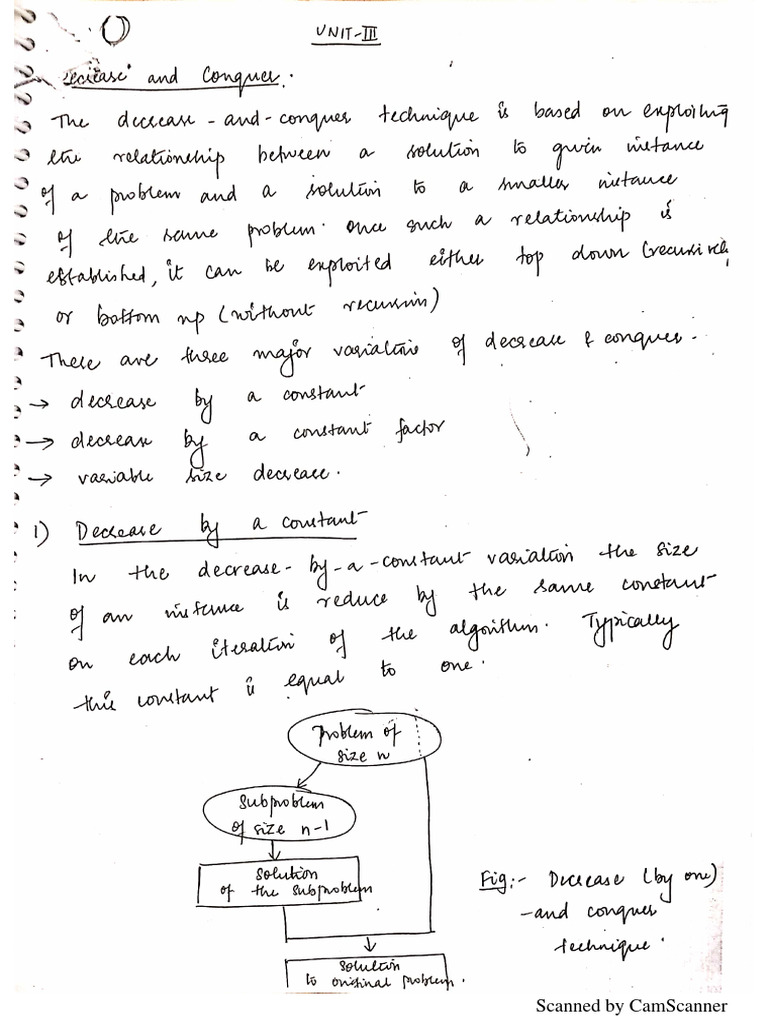 UNIT-III
Decrease and Conquer.
The decrease-and-conquer technique is based on exploiting
the relationship between a solution to given instance
of a problem and a solution to a smaller instance
of the same problem. once such a relationship is
established, it can be exploited either top down (recursively
or bottom up (without recursion)
There are three major variations of decrease & conquer.
→ decrease by a constant
→ decrease by a constant factor
→ variable size decrease.
1) Decrease by a constant
In the decrease-by-a-constant variation the size
of an instance is reduce by the same constant
on each iteration of the algorithm. Typically
this constant is equal to one.
Problem of
size n
Subproblem
of size n-1
solution
of the subproblem
Fig:- Decrease (by one)
-and conquer
technique.
solution
to original problem.
Scanned by CamScanner